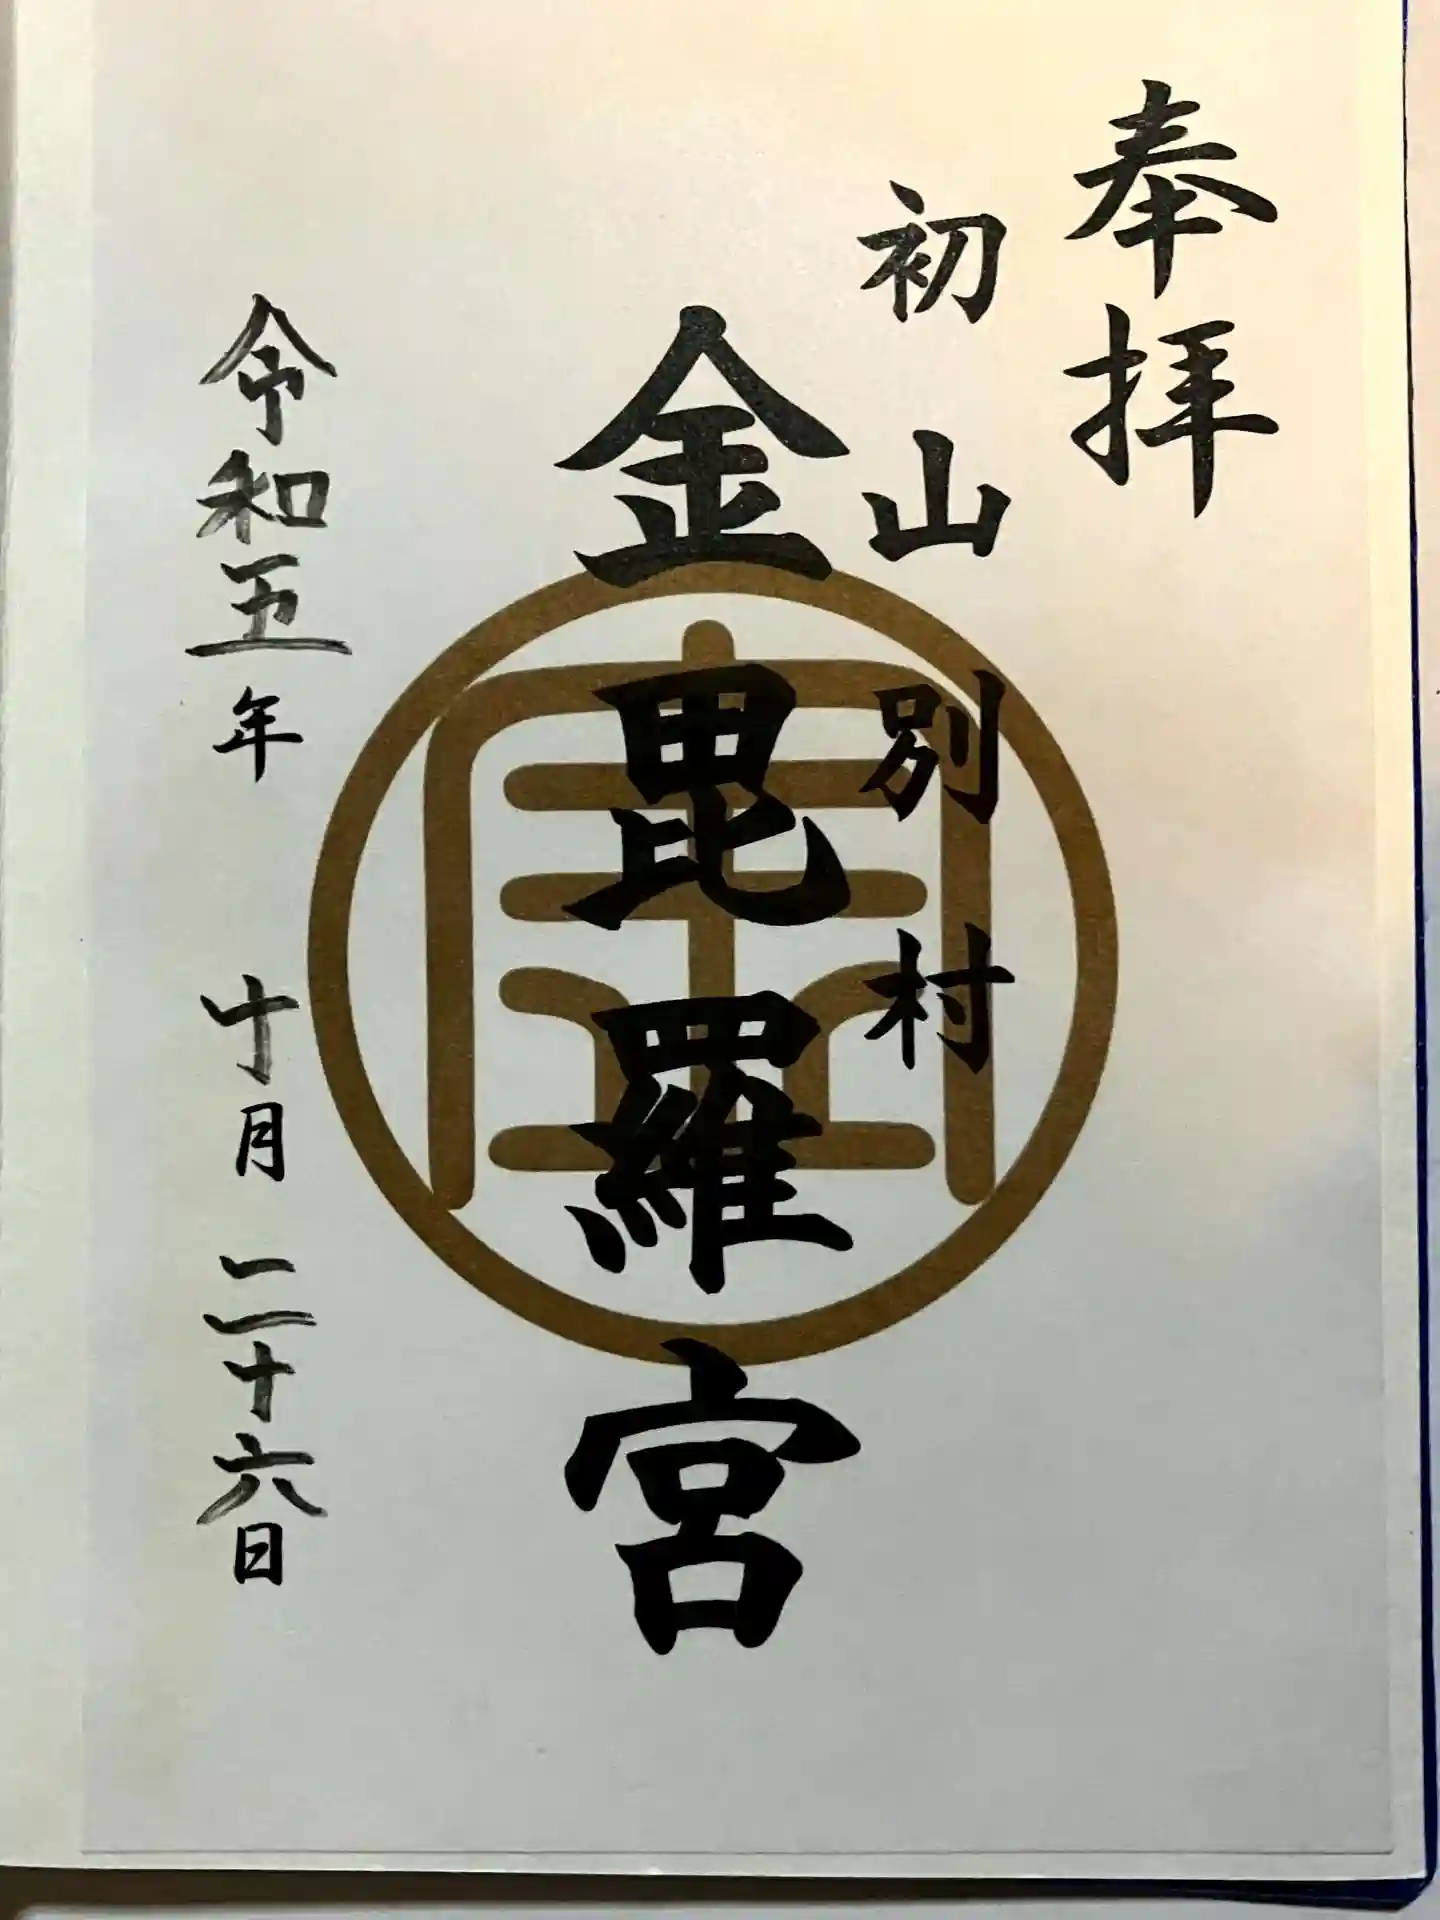 奉拝
初山別村
金毘羅宮
令和五年 十月二十六日